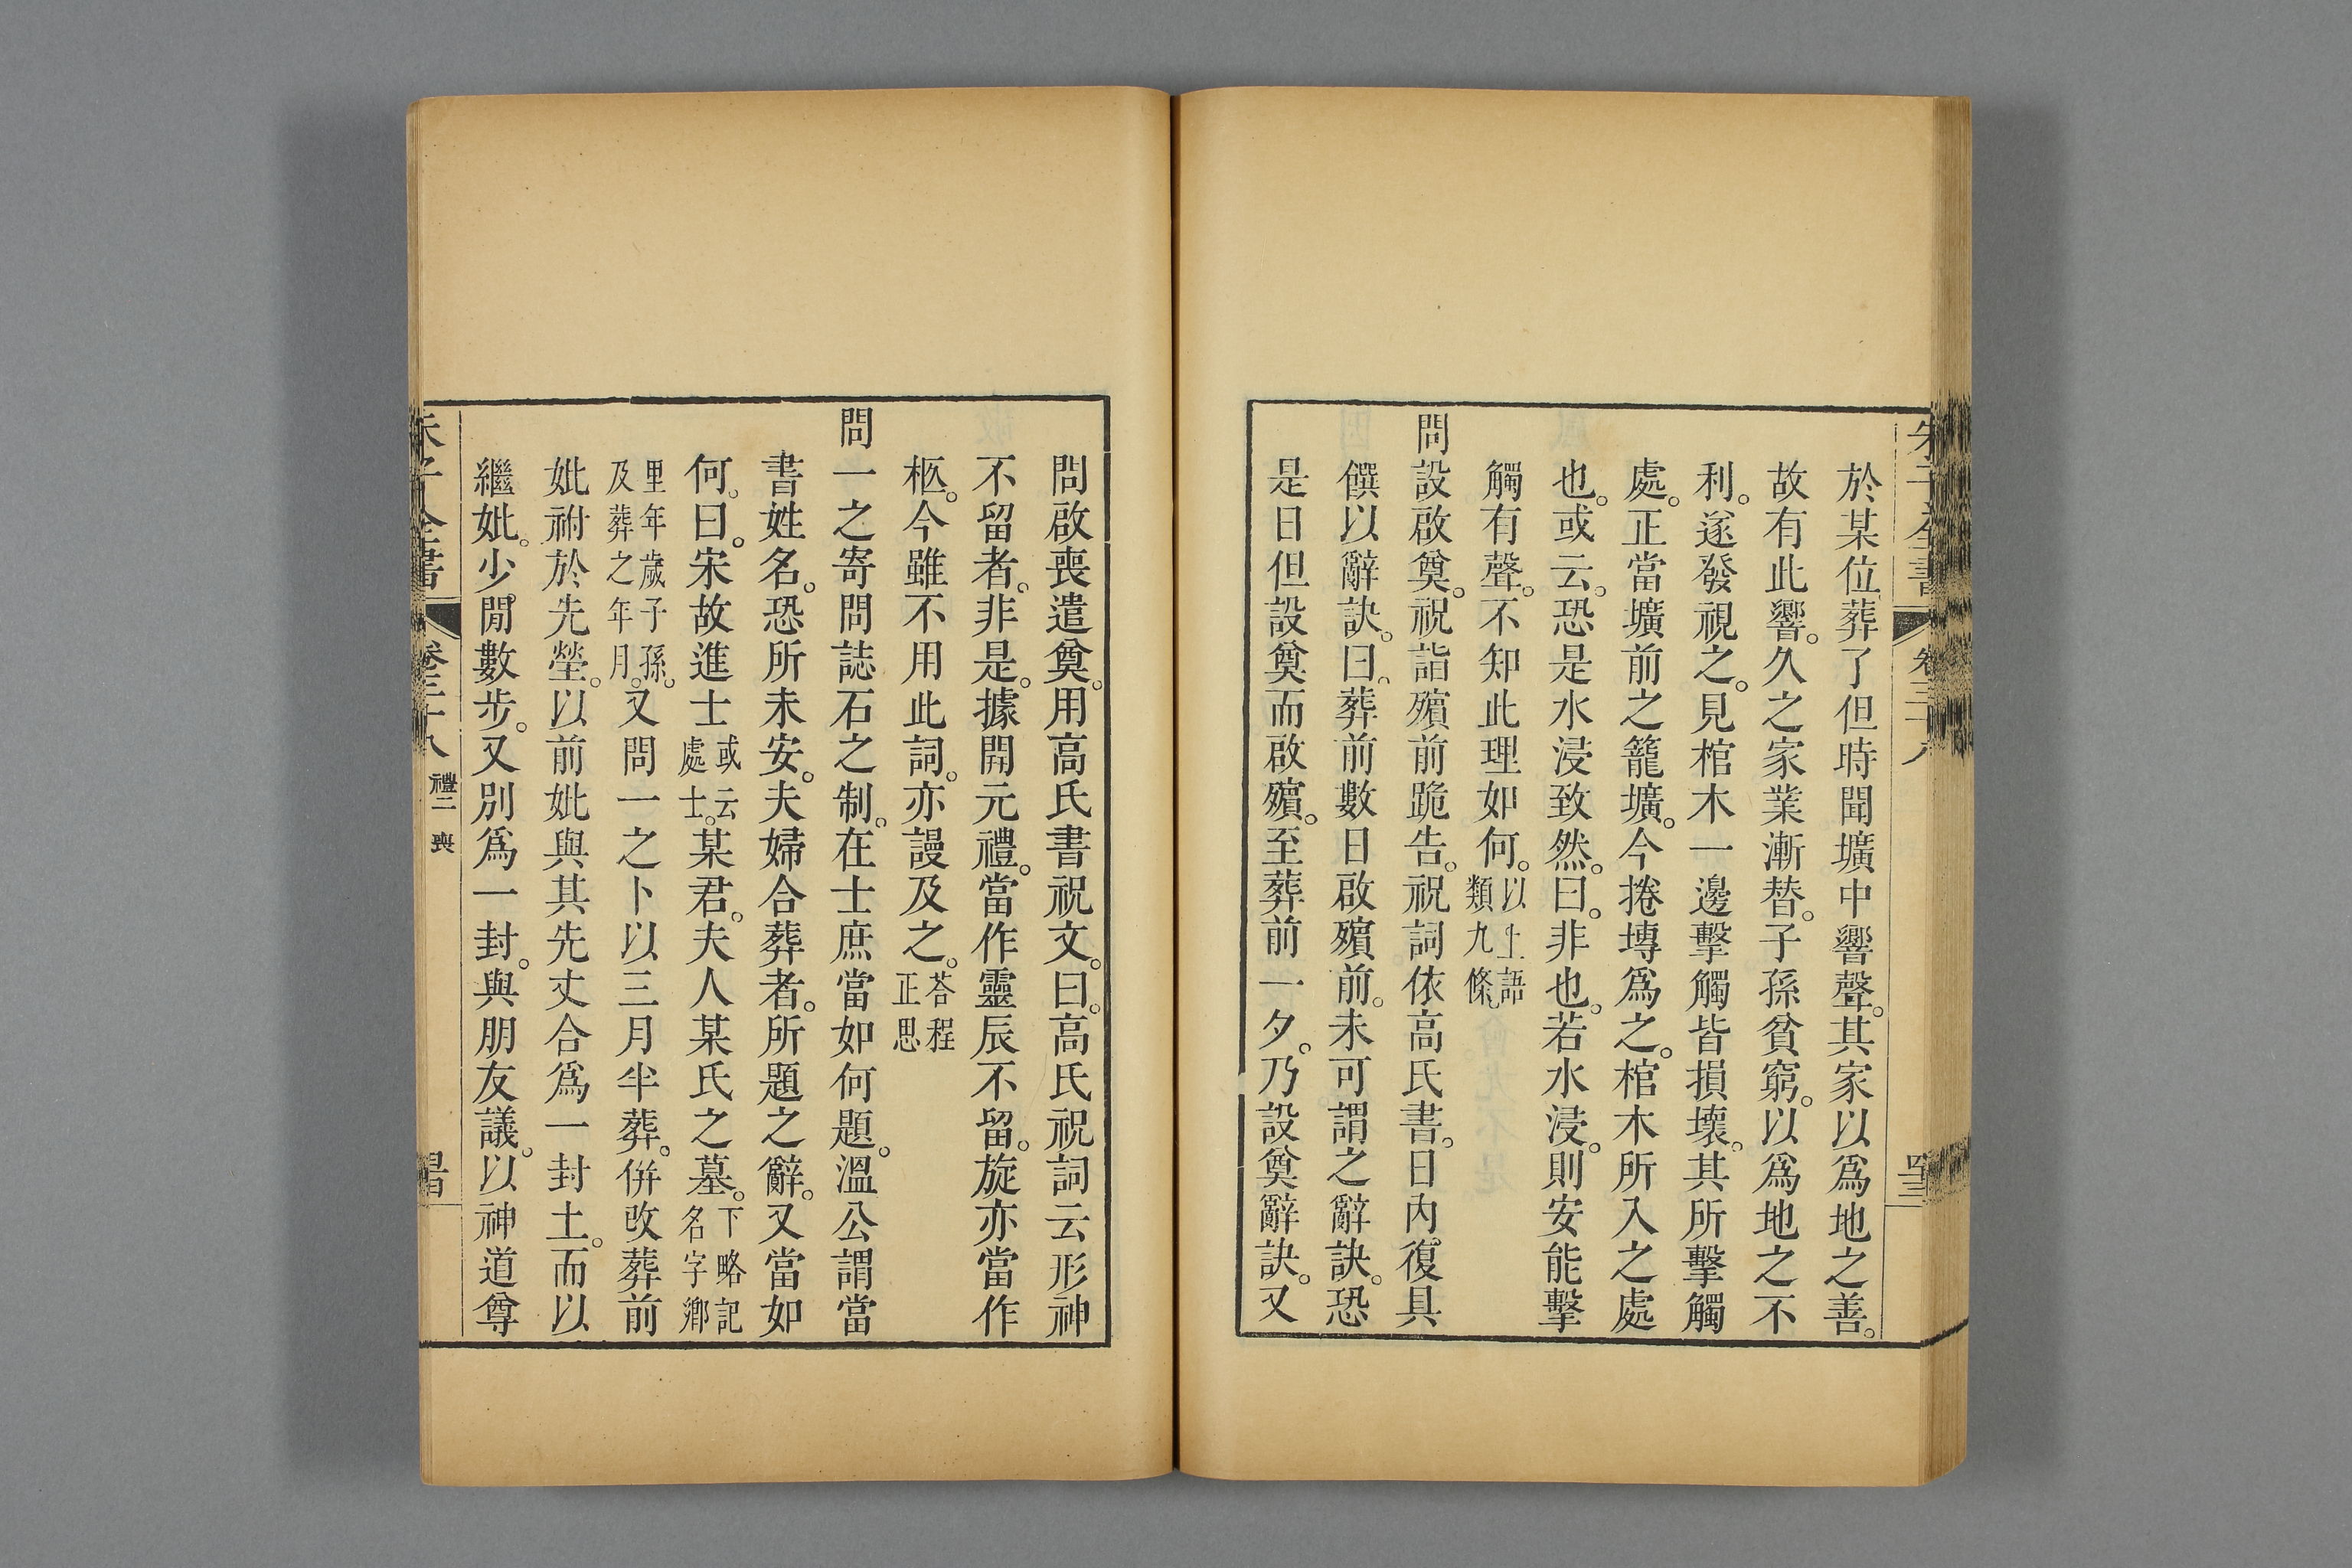 於某位葬了但時聞壙中響聲。其家以爲地之善。
故有此響。久之家業漸替。子孫貧窮。以爲地之不
利。遂發視之。見棺木一邊擊觸皆損壞。其所擊觸
處。正當壙前之籠壙。今捲塼爲之。棺木所入之處
也。或云。恐是水浸致然。曰。非也。若水浸。則安能擊
觸有聲。不知此理如何。以上語類九條。
問設啟奠。祝詣殯前跪告。祝詞依高氏書。日內復具
饌以辭訣。曰。葬前數日啟殯前。未可謂之辭訣。恐
是日但設奠而啟殯。至葬前一夕。乃設奠辭訣。又
問啟喪遣奠。用高氏書祝文。曰。高氏祝詞云形神
不留者。非是。據開元禮。當作靈辰不留。旋亦當作
柩。今雖不用此詞。亦謾及之。荅程正思
問一之寄問誌石之制。在士庶當如何題。溫公謂當
書姓名。恐所未安。夫婦合葬者。所題之辭。又當如
何。曰。宋故進士或云處士。某君。夫人某氏之墓。下略記名字鄉
里年歲子孫。及葬之年月。又問一之卜以三月半葬。併改葬前
妣祔於先塋。以前妣與其先丈合爲一封土。而以
繼妣。少閒數步。又別爲一封。與朋友議。以神道尊
朱子全書 卷三十八 禮二 喪